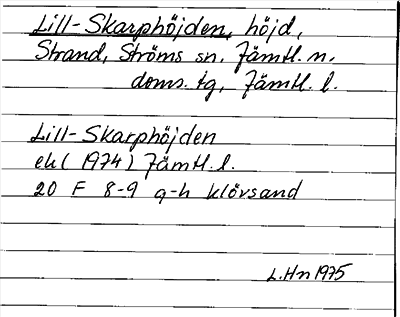 Lill-Skarphöjden, höjd,
Strand, Ströms sn, Jämtl. n.
doms. tg, Jämtl. l.
Lill-Skarphöjden
ek (1974) Jämtl. l.
20 F 8-9 g-h klövsand
L.Hn 1975